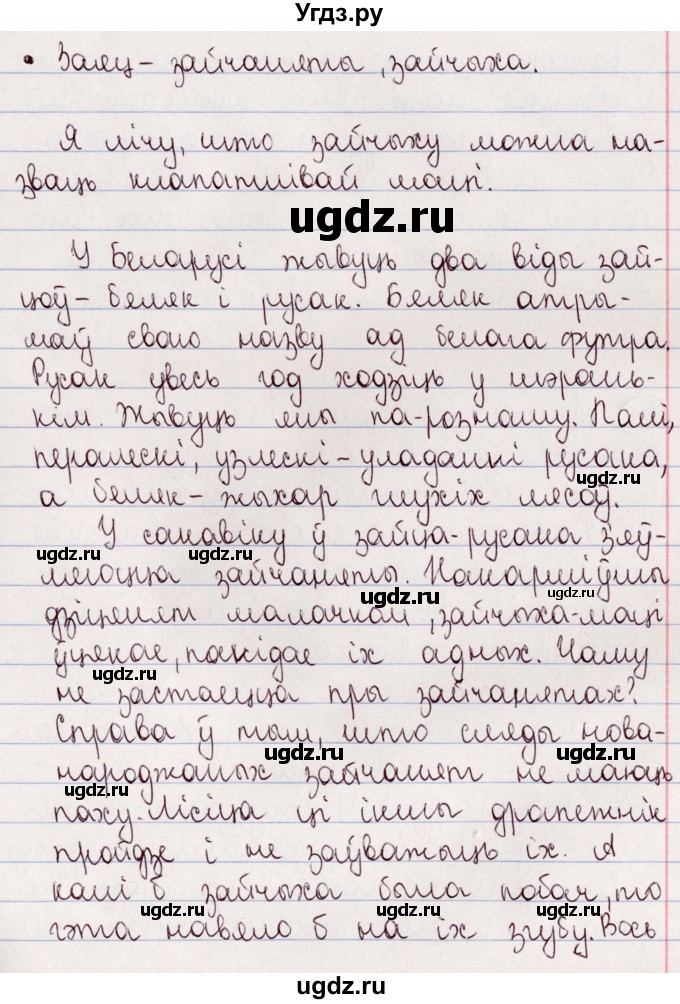 Угдз.ру
• Заяц – зайчаняты, зайчыха.
Я лічу, што зайчыху можна на-
зваць клапатлівай маці.
ugdz.ru
У Беларусі жывуць два віды зай-
цоў – бяляк і русак. Бяляк атры-
маў сваю назву ад белага футра.
Русак увесь год ходзіць у шэрань-
кім. Жывуць яны па-рознаму. Палі,
пералескі, узлескі – уладанні русака,
а бяляк – жыхар глухіх лясоў.
У сакавіку ў зайца-русака з'яў-
ugdz.ru ugdz.ru
ляюцца зайчаняты. Накарміўшы
ugdz.ru
ugdz.ru
дзіцянят малачком, зайчыха-маці
ўцякае, пакідае іх адных. Чаму
не застаецца пры зайчанятах?
Справа ў тым, што сляды нова-
ugdz.ru ugdz.ru
народжаных зайчанят не маюць
паху. Лісіца ці іншы драпежнік
пройдзе і не заўважыць іх. А
калі б зайчыха была побач, то
ugdz.ru ugdz.ru ugdz.ru
гэта навяло б на іх згубу. Вось
ugdz.ru